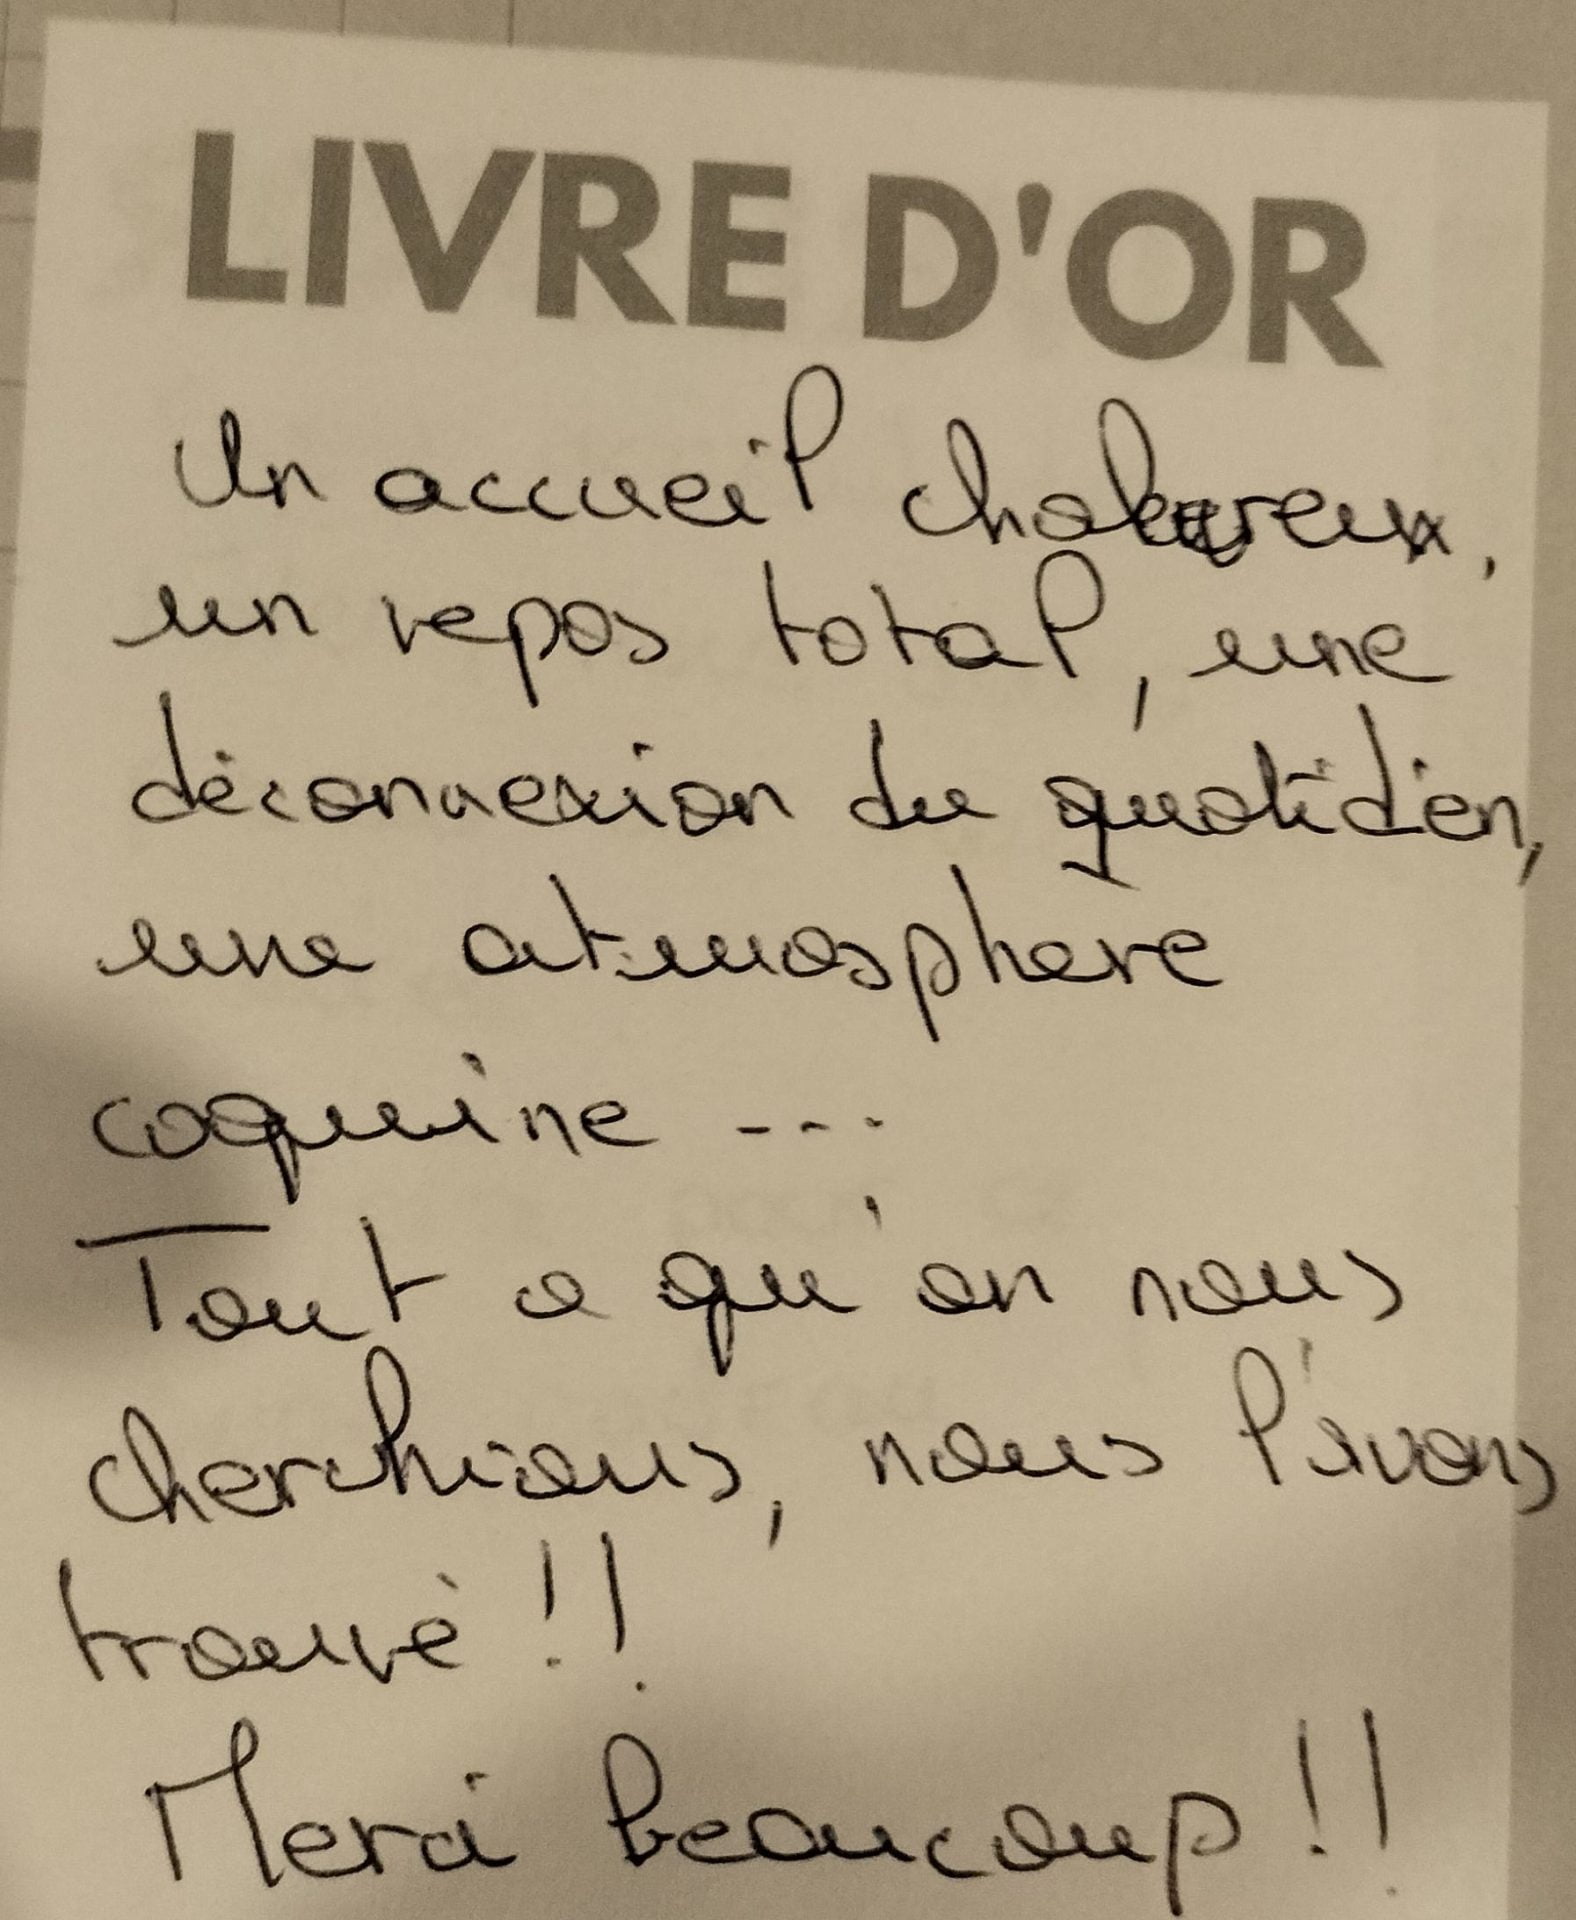 LIVRE D'OR
Un accueil chaleureux,
un repos total, une
déconnexion du quotidien,
une atmosphere
coquine ...
Tout ce qu'on nous
cherchions, nous l'avons
trouvé !!
Merci beaucoup !!